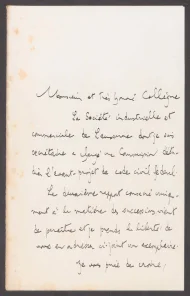 Monsieur et très honoré Collègue
La Société industrielle et
commerciale de Lausanne dont je suis
secrétaire a chargé une Commission d'étu-
dier l'avant-projet de code civil fédéral.
Le deuxième rapport concernant
à la matière des successions vient
de paraître et je prends la liberté de
vous en adresser ci-joint un exemplaire.
Je vous prie de croire,